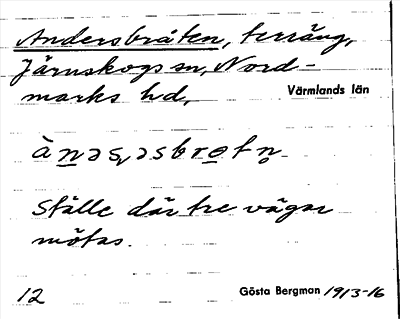 Andersbråten, terräng,
Järnskogs sn, Nord-
marks hd, Värmlands län
Ställe där tre vägar
mötas.
12 Gösta Bergman 1913-16